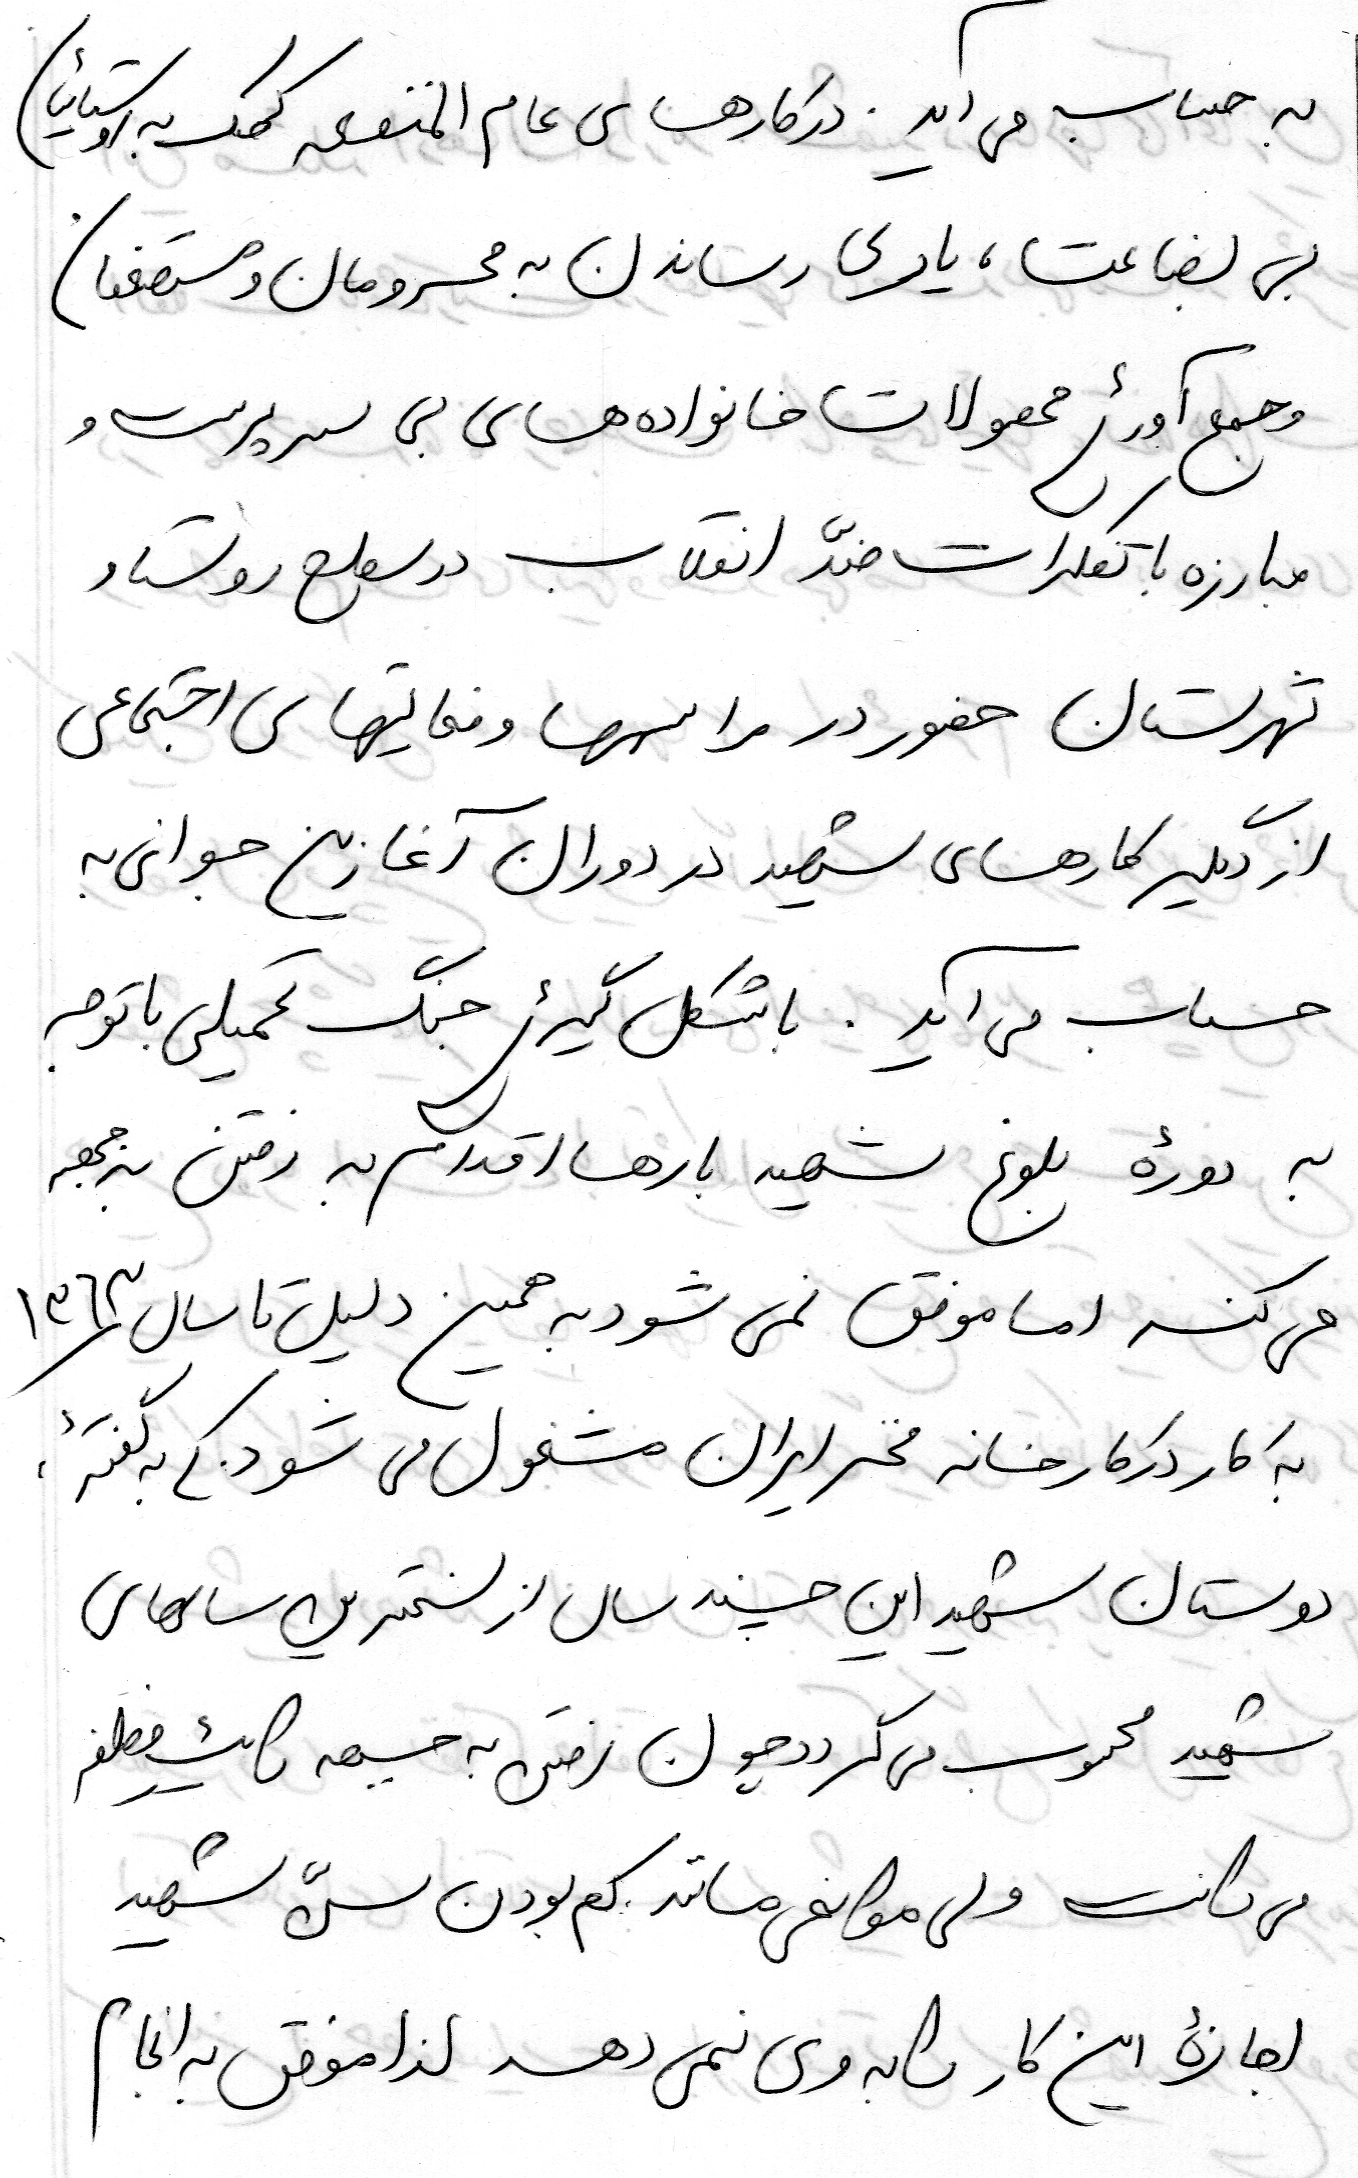 به حساب می آید. در کارهای عام المنفعه کمک به روستائیان
بی بضاعت، یاری رساندن به محرومان و مستضعفان
و جمع آوریٔ محصولات خانواده های بی سرپرست و
مبارزه با تفکرات ضدّ انقلاب در سطح روستا و
شهرستان حضور در مراسمها و فعالیتهای اجتماعی
از دیگر کارهای شهید در دوران آغازین جوانی به
حساب می آید. با شکل گیریٔ جنگ تحمیلی با توجه
به دورهٔ بلوغ شهید بارها اقدام به رفتن به جبهه
می کند اما موفق نمی شود به همین دلیل تا سال ۱۳۶۳
به کار در کارخانه فخر ایران مشغول می شود. که به گفتهٔ
دوستان شهید این چند سال از سخترین سالهای
شهید محسوب می گردد چون رفتن به جبهه را یک وظیفه
می دانست ولی موانعی مانند کم بودن سنّ شهید
اجازهٔ این کار را به وی نمی دهد لذا موفق به انجام